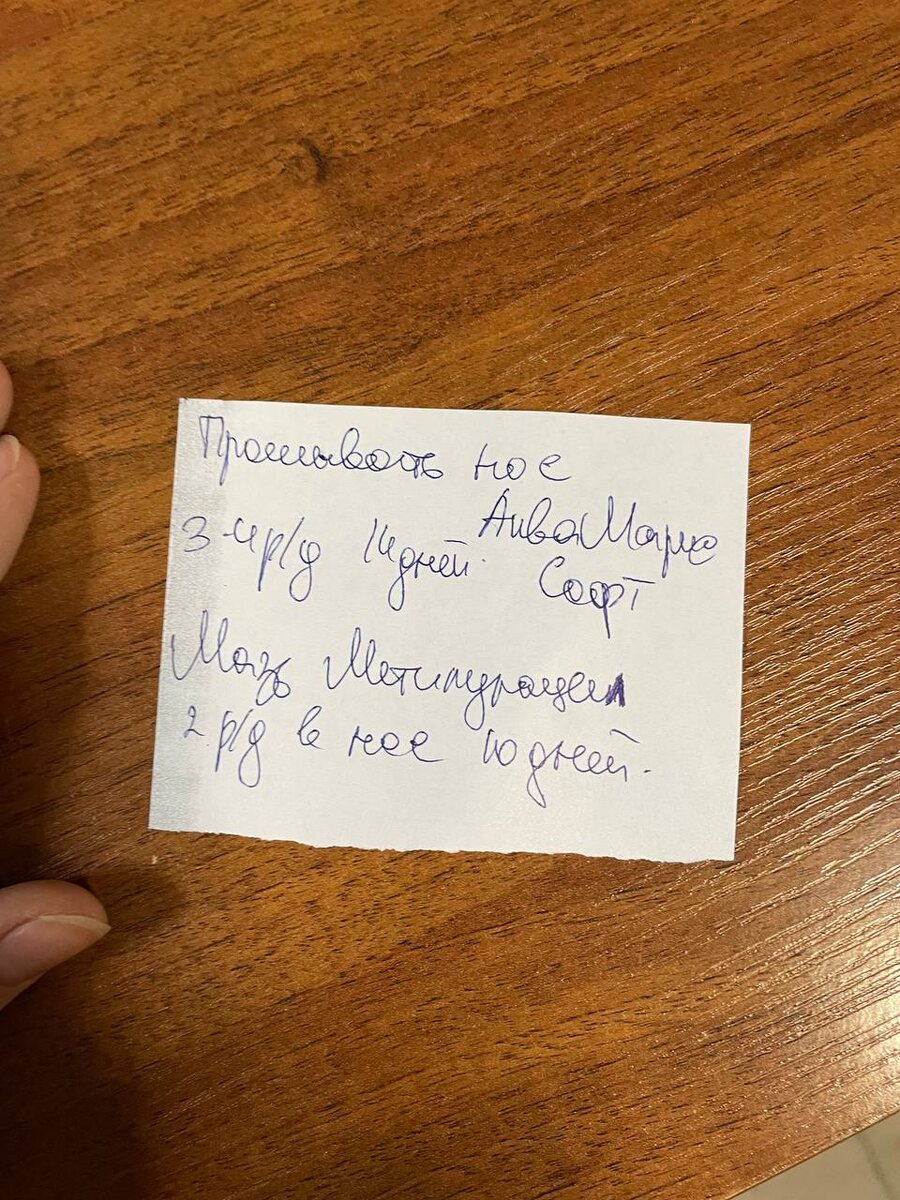 Промывать нос
АкваМарис
3-4 р/д 14 дней. Софт
Мазь Метилурацил
2 р/д в нос 10 дней.